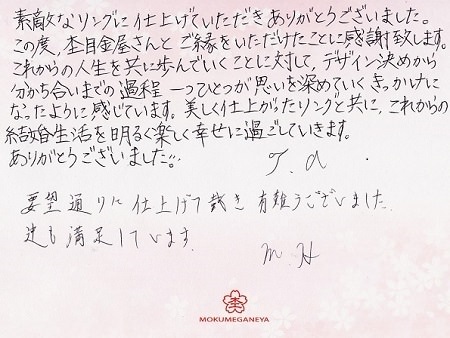 素敵なリングに仕上げていただきありがとうございました。
この度、杢目金屋さんとご縁をいただけたことに感謝致します。
これからの人生を共に歩んでいくことに対して、デザイン決めから
分かち合いまでの過程 一つひとつが思いを深めていくきっかけに
なったように感じています。美しく仕上がったリングと共に、これからの
結婚生活を明るく楽しく幸せに過ごしていきます。
ありがとうございました。
T. a
要望通りに仕上げて頂き 有難うございました。
も満足しています。
M. H
杢
MOKUMEGANEYA